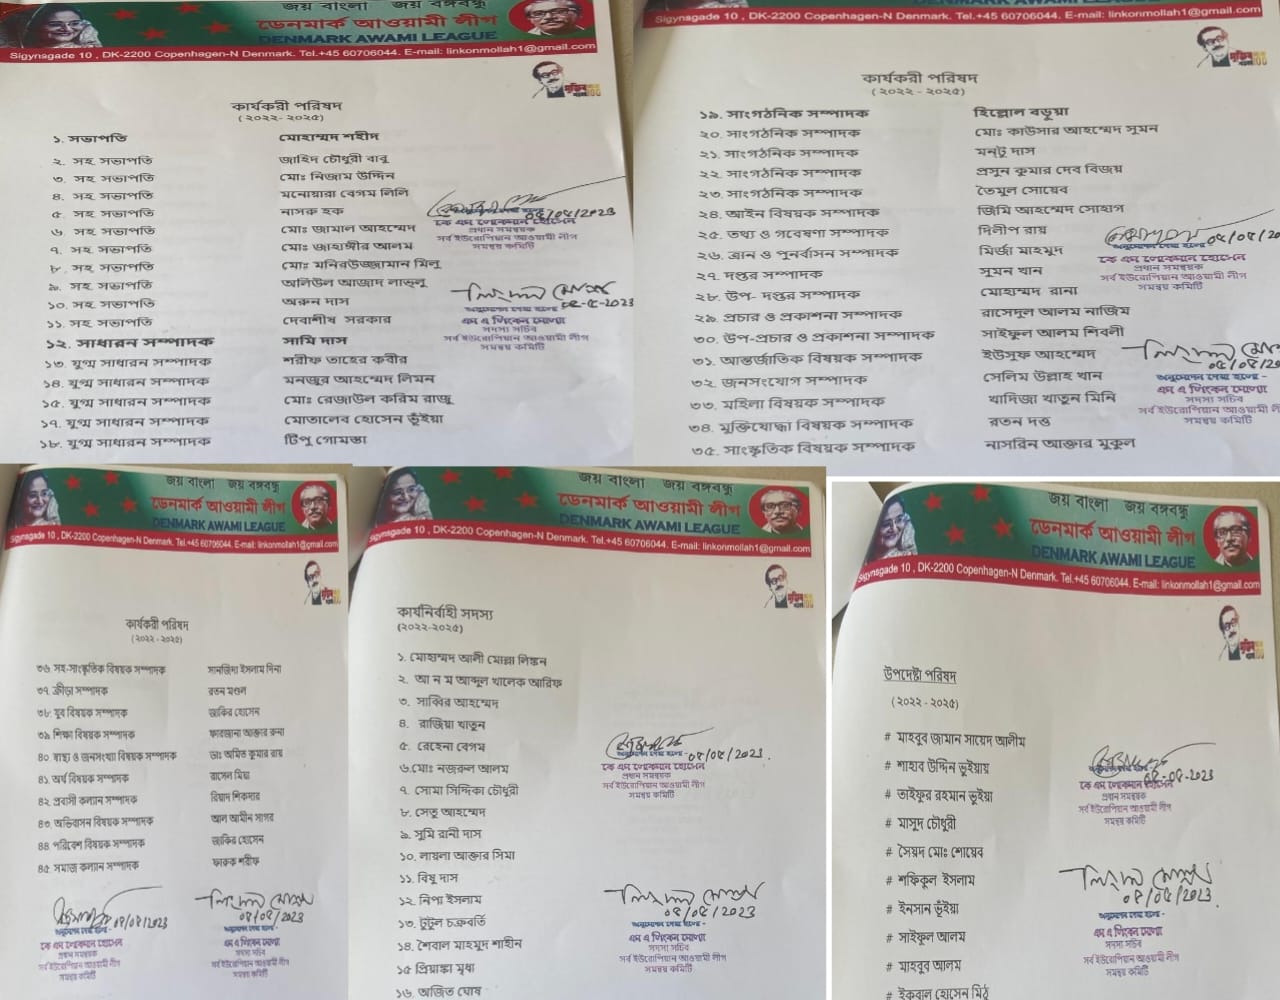 জয় বাংলা জয় বঙ্গবন্ধু
ডেনমার্ক আওয়ামী লীগ
DENMARK AWAMI LEAGUE
Sigynsgade 10 , DK-2200 Copenhagen-N Denmark. Tel.+45 60706044. E-mail: linkonmollah1@gmail.com
কার্যকরী পরিষদ
(২০২২- ২০২৫)
১. সভাপতি মোহাম্মদ শহীদ
২. সহ সভাপতি জাহিদ চৌধুরী বাবু
৩. সহ সভাপতি মোঃ নিজাম উদ্দিন
৪. সহ সভাপতি মনোয়ারা বেগম লিলি
৫. সহ সভাপতি নাসরু হক
৬. সহ সভাপতি মোঃ জামাল আহম্মেদ
৭. সহ সভাপতি মোঃ জাহাঙ্গীর আলম
৮. সহ সভাপতি মোঃ মনিরউজ্জামান মিলু
৯. সহ সভাপতি অলিউল আজাদ লাভলু
১০. সহ সভাপতি অরুন দাস
১১. সহ সভাপতি দেবাশীষ সরকার
১২. সাধারন সম্পাদক সামি দাস
১৩. যুগ্ম সাধারন সম্পাদক শরীফ তাহের কবীর
১৪. যুগ্ম সাধারন সম্পাদক মনজুর আহম্মেদ লিমন
১৫. যুগ্ম সাধারন সম্পাদক মোঃ রেজাউল করিম রাজু
১৭. যুগ্ম সাধারন সম্পাদক মোতালেব হোসেন ভুঁইয়া
১৮. যুগ্ম সাধারন সম্পাদক টিপু গোমস্তা
০৫/০৫/২০23
অনুমোদন দেয়া হলোঃ-
কে এম লোকমান হোসেন
প্রধান সমন্বয়ক
সর্ব ইউরোপিয়ান আওয়ামী লীগ
সমন্বয় কমিটি
০৫-৫-২০23
অনুমোদন দেয়া হলোঃ-
এম এ লিংকন মোল্লা
সদস্য সচিব
সর্ব ইউরোপিয়ান আওয়ামী লীগ
সমন্বয় কমিটি
DENMARK AWAMI LEAGUE
Sigynsgade 10 , DK-2200 Copenhagen-N Denmark. Tel.+45 60706044. E-mail: linkonmollah1@gmail.com
কার্যকরী পরিষদ
(২০২২ - ২০২৫)
১৯. সাংগঠনিক সম্পাদক হিল্লোল বড়ুয়া
২০. সাংগঠনিক সম্পাদক মোঃ কাউসার আহম্মেদ সুমন
২১. সাংগঠনিক সম্পাদক মনটু দাস
২২. সাংগঠনিক সম্পাদক প্রসুন কুমার দেব বিজয়
২৩. সাংগঠনিক সম্পাদক তৈমুল সোয়েব
২৪. আইন বিষয়ক সম্পাদক জিমি আহম্মেদ সোহাগ
২৫. তথ্য ও গবেষণা সম্পাদক দিলীপ রায়
২৬. ত্রান ও পুনর্বাসন সম্পাদক মির্জা মাহমুদ
২৭. দপ্তর সম্পাদক সুমন খান
২৮. উপ- দপ্তর সম্পাদক মোহাম্মদ রানা
২৯. প্রচার ও প্রকাশনা সম্পাদক রাসেদুল আলম নাজিম
৩০. উপ-প্রচার ও প্রকাশনা সম্পাদক সাইফুল আলম শিবলী
৩১. আন্তর্জাতিক বিষয়ক সম্পাদক ইউসুফ আহম্মেদ
৩২. জনসংযোগ সম্পাদক সেলিম উল্লাহ খান
৩৩. মহিলা বিষয়ক সম্পাদক খাদিজা খাতুন মিনি
৩৪. মুক্তিযোদ্ধা বিষয়ক সম্পাদক রতন দত্ত
৩৫. সাংস্কৃতিক বিষয়ক সম্পাদক নাসরিন আক্তার মুকুল
কে এম লোকমান হোসেন
প্রধান সমন্বয়ক
সর্ব ইউরোপিয়ান আওয়ামী লীগ
সমন্বয় কমিটি
অনুমোদন দেয়া হলোঃ-
এম এ লিংকন মোল্লা
সদস্য সচিব
সর্ব ইউরোপিয়ান আওয়ামী লীগ
সমন্বয় কমিটি
জয় বাংলা জয় বঙ্গবন্ধু
ডেনমার্ক আওয়ামী লীগ
DENMARK AWAMI LEAGUE
Sigynsgade 10 , DK-2200 Copenhagen-N Denmark. Tel.+45 60706044. E-mail: linkonmollah1@gmail.com
কার্যকরী পরিষদ
(২০২২ - ২০২৫)
৩৬. সহ-সাংস্কৃতিক বিষয়ক সম্পাদক সানজিদা ইসলাম দিনা
৩৭. ক্রীড়া সম্পাদক রতন মণ্ডল
৩৮. যুব বিষয়ক সম্পাদক জাকির হোসেন
৩৯ শিক্ষা বিষয়ক সম্পাদক ফারজানা আক্তার রুনা
৪০. স্বাস্থ্য ও জনসংখ্যা বিষয়ক সম্পাদক ডাঃ অমিত কুমার রায়
৪১. অর্থ বিষয়ক সম্পাদক রাসেল মিয়া
৪২. প্রবাসী কল্যান সম্পাদক রিয়াদ শিকদার
৪৩. অভিবাসন বিষয়ক সম্পাদক আল আমীন সাগর
৪৪. পরিবেশ বিষয়ক সম্পাদক জাকির হোসেন
৪৫. সমাজ কল্যান সম্পাদক ফারুক শরীফ
০৫/০৫/২০২৩
অনুমোদন দেয়া হলোঃ-
কে এম লোকমান হোসেন
প্রধান সমন্বয়ক
সর্ব ইউরোপিয়ান আওয়ামী লীগ
সমন্বয় কমিটি
০৫/০৫/২০২৩
অনুমোদন দেয়া হলোঃ-
এম এ লিংকন মোল্লা
সদস্য সচিব
সর্ব ইউরোপিয়ান আওয়ামী লীগ
সমন্বয় কমিটি
জয় বাংলা জয় বঙ্গবন্ধু
ডেনমার্ক আওয়ামী লীগ
DENMARK AWAMI LEAGUE
Sigynsgade 10 , DK-2200 Copenhagen-N Denmark. Tel.+45 60706044. E-mail: linkonmollah1@gmail.com
কার্যনির্বাহী সদস্য
(২০২২-২০২৫)
১. মোহাম্মদ আলী মোল্লা লিঙ্কন
২. আ ন ম আব্দুল খালেক আরিফ
৩. সাব্বির আহম্মেদ
৪. রাজিয়া খাতুন
৫. রেহেনা বেগম
৬.মোঃ নজরুল আলম
৭. সোমা সিদ্দিকা চৌধুরী
৮. সেতু আহম্মেদ
৯. সুমি রানী দাস
১০. লায়লা আক্তার সিমা
১১. বিষু দাস
১২. নিপা ইসলাম
১৩. টুটুল চক্রবর্তি
১৪. শৈবাল মাহমুদ শাহীন
১৫ প্রিয়াঙ্কা মৃধা
১৬. অজিত ঘোষ
০৫/০৫/২০23
অনুমোদন দেয়া হলোঃ-
কে এম লোকমান হোসেন
প্রধান সমন্বয়ক
সর্ব ইউরোপিয়ান আওয়ামী লীগ
সমন্বয় কমিটি
০৫/০৫/২০23
অনুমোদন দেয়া হলোঃ-
এম এ লিংকন মোল্লা
সদস্য সচিব
সর্ব ইউরোপিয়ান আওয়ামী লীগ
সমন্বয় কমিটি
জয় বাংলা জয় বঙ্গবন্ধু
ডেনমার্ক আওয়ামী লীগ
DENMARK AWAMI LEAGUE
Sigynsgade 10 , DK-2200 Copenhagen-N Denmark. Tel.+45 60706044. E-mail: linkonmollah1@gmail.com
উপদেষ্টা পরিষদ
(২০২২ - ২০২৫)
# মাহবুব জামান সায়েদ আলীম
# শাহাব উদ্দিন ভুইয়ায়
# তাইফুর রহমান ভুইয়া
# মাসুদ চৌধুরী
# সৈয়দ মোঃ শোয়েব
# শফিকুল ইসলাম
# ইনসান ভুঁইয়া
# সাইফুল আলম
# মাহবুব আলম
# ইকবাল হোসেন মিঠু
০৫-০৫-২০23
কে এম লোকমান হোসেন
প্রধান সমন্বয়ক
সর্ব ইউরোপিয়ান আওয়ামী লীগ
সমন্বয় কমিটি
০৫/০৫/২০২৩.
অনুমোদন দেয়া হলোঃ-
এম এ লিংকন মোল্লা
সদস্য সচিব
সর্ব ইউরোপিয়ান আওয়ামী লীগ
সমন্বয় কমিটি